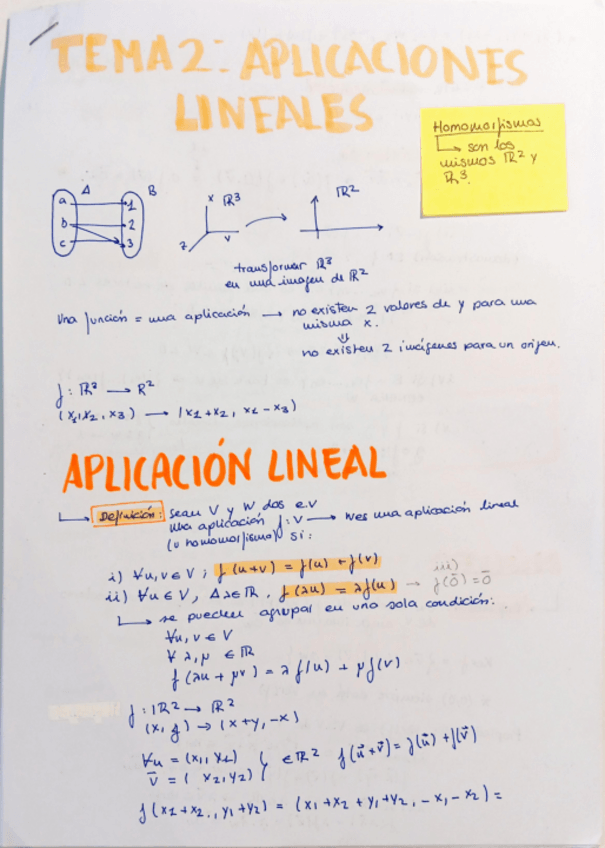 TEMA 2: APLICACIONES
LINEALES
Homomorfismos
↳ son los
mismos ℝ² y
ℝ³.
A B
a 1
b 2
c 3
x ℝ³
z y
ℝ²
transformar ℝ³
en una imagen de ℝ²
Una función = una aplicación → no existen 2 valores de y para una
misma x.
⇓
no existen 2 imágenes para un origen.
f: ℝ³ → ℝ²
(x₁, x₂, x₃) → (x₁+x₂, x₂-x₃)
APLICACIÓN LINEAL
↳ Definición: sean V y W dos e.v
una aplicación f: V → W es una aplicación lineal
(u homomorfismo) si:
i) ∀u,v ∈ V; f(u+v) = f(u) + f(v)
ii) ∀u ∈ V, Δλ∈ℝ, f(λu) = λf(u) → iii) f(0̄) = 0̄
↳ se pueden agrupar en una sola condición:
∀u, v ∈ V
∀ λ, μ ∈ ℝ
f(λu + μv) = λf(u) + μf(v)
f: ℝ² → ℝ²
(x, y) → (x+y, -x)
∀u = (x₁, y₁) } ∈ ℝ² f(u⃗+v⃗) = f(u⃗) + f(v⃗)
v̄ = (x₂, y₂)
f(x₁+x₂, y₁+y₂) = (x₁+x₂+y₁+y₂, -x₁-x₂) =